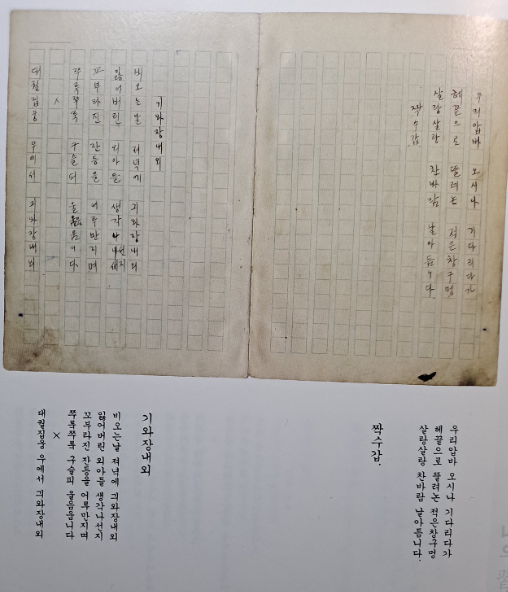 우리압바 오시나 기다리다가
헤끝으로 뚤려논 적은창구멍
살랑살랑 찬바람 날아듭니다
짝수갑
기와장내외
비오는날 저녁에 긔와장내외
잃어버린 외아들 생각나선지
꼬부라진 잔등을 어루만지며
쭈룩쭈룩 구슬피 울음웁니다
×
대궐집웅 우에서 긔와장내외
우리압바 오시나 기다리다가
헤끝으로 뚤려논 적은창구멍
살랑살랑 찬바람 날아듭니다.
짝수갑.
기와장내외
비오는날 저녁에 긔와장내외
잃어버린 외아들 생각나선지
꼬부라진 잔등을 어루만지며
쭈룩쭈룩 구슬피 울음웁니다
×
대궐집웅 우에서 긔와장내외